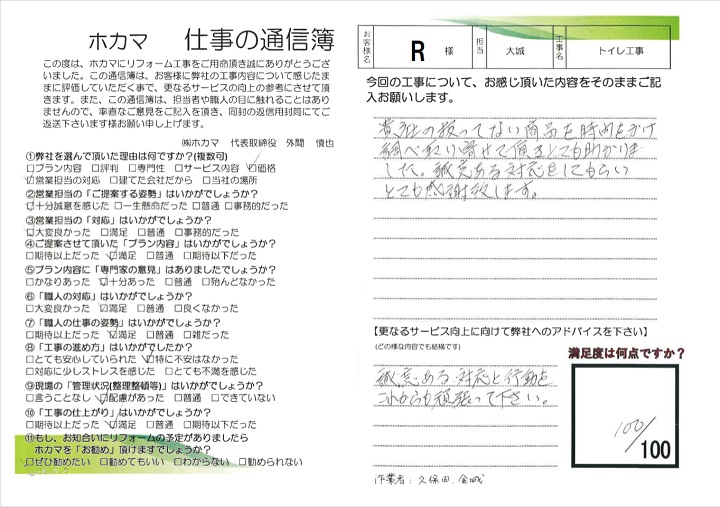 ホカマ 仕事の通信簿
この度は、ホカマにリフォーム工事をご用命頂き誠にありがとうござ
いました。この通信簿は、お客様に弊社の工事内容について感じたまま
まに評価していただく事で、更なるサービスの向上の参考にさせて頂
きます。また、この通信簿は、担当者や職人の目に触れることはあり
ませんので、率直なご意見をご記入を頂き、同封の返信用封筒にてご
返送下さいます様お願い申し上げます。
㈱ホカマ 代表取締役 外間 慎也
①弊社を選んで頂いた理由は何ですか?(複数可)
□プラン内容 □評判 □専門性 □サービス内容 ☑価格
☑営業担当の対応 □建てた会社だから □当社の場所
②営業担当の「ご提案する姿勢」はいかがでしょうか?
☑十分誠意を感じた □一生懸命だった □普通 □事務的だった
③営業担当の「対応」はいかがでしょうか?
☑大変良かった □満足 □普通 □事務的だった
④ご提案させて頂いた「プラン内容」はいかがでしょうか?
□期待以上だった ☑満足 □普通 □期待以下だった
⑤プラン内容に「専門家の意見」はありましたでしょうか?
□かなりあった ☑十分あった □普通 □殆んどなかった
⑥「職人の対応」はいかがでしょうか?
□大変良かった ☑満足 □普通 □良くなかった
⑦「職人の仕事の姿勢」はいかがでしょうか?
□期待以上だった ☑満足 □普通 □雑だった
⑧「工事の進め方」はいかがでしたか?
□とても安心していられた ☑特に不安はなかった
□対応に少しストレスを感じた □とても不満を感じた
⑨現場の「管理状況(整理整頓等)」はいかがでしょうか?
□言うことなし ☑配慮があった □普通 □できていない
⑩「工事の仕上がり」はいかがでしょうか?
□期待以上だった ☑満足 □普通 □期待以下だった
⑪もし、お知合いにリフォームの予定がありましたら
ホカマを「お勧め」頂けますでしょうか?
☑ぜひ勧めたい □勧めてもいい □わからない □勧められない
お客様名 R 様 担当 大城 工事名 トイレ工事
今回の工事について、お感じ頂いた内容をそのままご記
入お願いします。
貴社の扱ってない商品を時間をかけ
調べ取り寄せて頂きとても助かりま
した。誠意ある対応をしてもらい
とても感謝致します。
【更なるサービス向上に向けて弊社へのアドバイスを下さい】
(どの様な内容でも結構です)
誠意ある対応と行動を
これからも頑張って下さい。
満足度は何点ですか?
100/100
作業者:久保田、金城